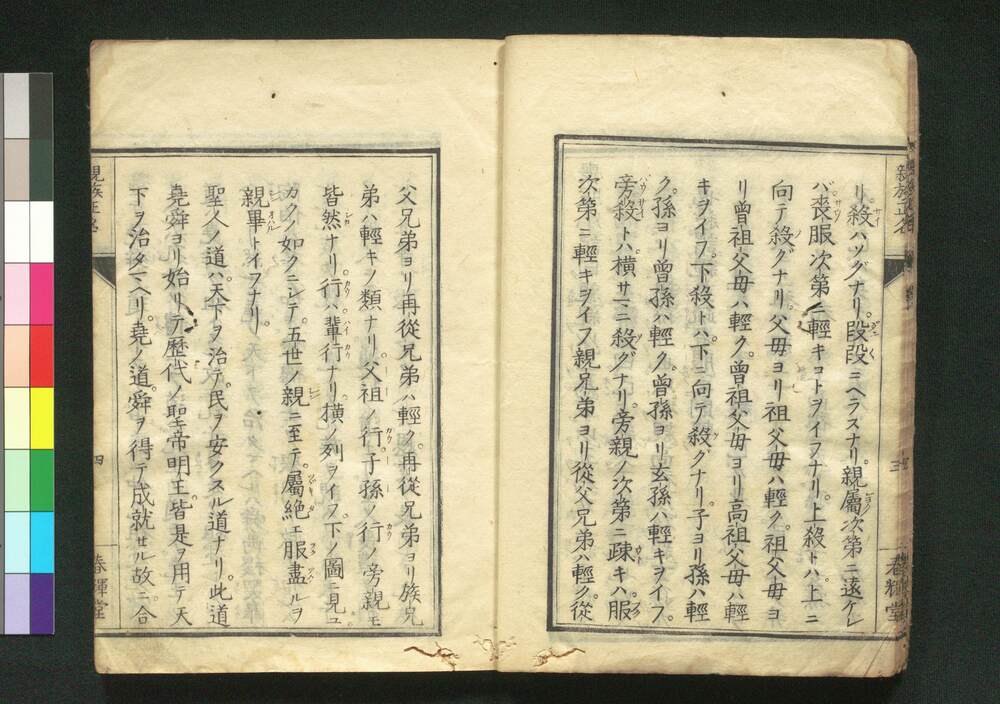 リ。殺ハソグナリ。段段ニヘラスナリ。親屬次第ニ遠ケレ
バ喪服次第ニ輕キコトヲイフナリ。上殺トハ上ニ
向テ殺グナリ。父母ヨリ祖父母ハ輕ク。祖父母ヨ
リ曾祖父母ハ輕ク。曾祖父母ヨリ高祖父母ハ輕
キヲイフ。下殺トハ下ニ向テ殺グナリ。子ヨリ孫ハ輕
ク。孫ヨリ曾孫ハ輕ク。曾孫ヨリ玄孫ハ輕キヲイフ。
旁殺トハ横サマニ殺グナリ。旁親ノ次第ニ疎キハ服
次第ニ輕キヲイフ親兄弟ヨリ從父兄弟ハ輕ク。從
親族正名
四
春輝堂
父兄弟ヨリ再從兄弟ハ輕ク。再從兄弟ヨリ族兄
弟ハ輕キノ類ナリ。父祖ノ行。子孫ノ行ノ旁親モ
皆然ナリ。行ハ輩行ナリ。横ノ列ヲイフ。下ノ圖ニ見ユ。
カクノ如クニシテ。五世ノ親ニ至テ。屬絶エ服盡ルヲ
親畢トイフナリ。
聖人ノ道ハ。天下ヲ治テ。民ヲ安クスル道ナリ。此道
堯舜ヨリ始リテ。歴代ノ聖帝明王皆是ヲ用テ天
下ヲ治タマヘリ。堯ノ道。舜ヲ得テ成就セル故ニ。合
親族正名
四
春輝堂